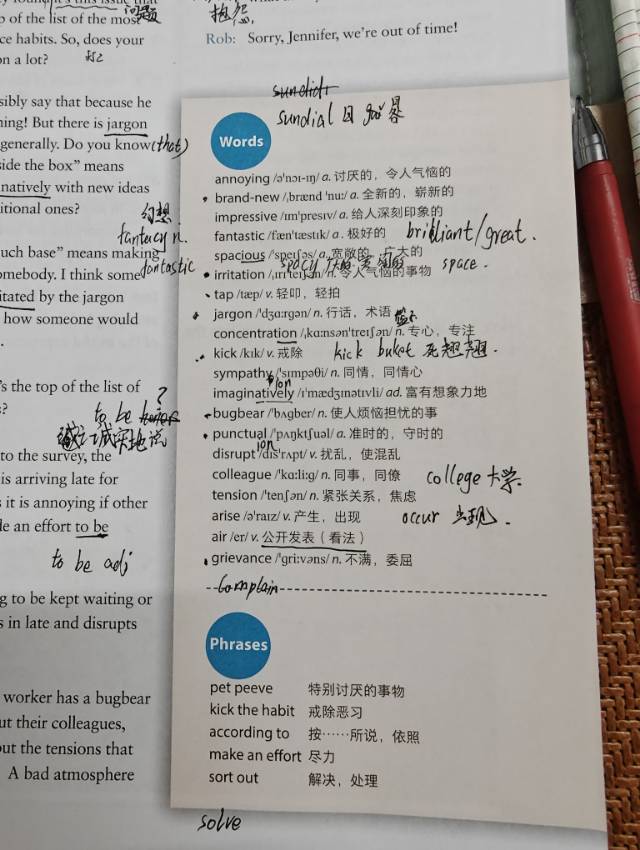 y foundit's this issue that 问题
o of the list of the most
ce habits. So, does your
n a lot?
sibly say that because he
ning! But there is jargon
generally. Do you know (that)
side the box” means
natively with new ideas
itional ones?
幻想
fantacy n.
fantastic
uch base” means making
omebody. I think some
itated by the jargon
how someone would
's the top of the list of
?
to be
to the survey, the
is arriving late for
it is annoying if other
le an effort to be
to be adj
g to be kept waiting or
s in late and disrupts
worker has a bugbear
ut their colleagues,
out the tensions that
A bad atmosphere
Rob: Sorry, Jennifer, we're out of time!
sundial 日
Words
annoying /ə'nɔɪ-ɪŋ/ a. 讨厌的，令人气恼的
brand-new /ˌbrænd 'nuː/ a. 全新的，崭新的
impressive /ɪm'presɪv/ a. 给人深刻印象的
fantastic /fæn'tæstɪk/ a. 极好的 brilliant/great.
spacious /'speɪʃəs/ a. 宽敞的，广大的
irritation /ˌɪrɪ'teɪʃən/ n. 令人气恼的事物 space.
tap /tæp/ v. 轻叩，轻拍
jargon /'dʒɑːrgən/ n. 行话，术语
concentration /ˌkɑːnsən'treɪʃən/ n. 专心，专注
kick /kɪk/ v. 戒除 kick buket 死翘翘.
sympathy /'sɪmpəθi/ n. 同情，同情心
ion
imaginatively /ɪ'mædʒɪnətɪvli/ ad. 富有想象力地
bugbear /'bʌgber/ n. 使人烦恼担忧的事
punctual /'pʌŋktʃuəl/ a. 准时的，守时的
ion
disrupt /dɪs'rʌpt/ v. 扰乱，使混乱
colleague /'kɑːliːg/ n. 同事，同僚 college 大学.
tension /'tenʃən/ n. 紧张关系，焦虑
arise /ə'raɪz/ v. 产生，出现 occur 出现.
air /er/ v. 公开发表（看法）
grievance /'griːvəns/ n. 不满，委屈
Complain
Phrases
pet peeve 特别讨厌的事物
kick the habit 戒除恶习
according to 按……所说，依照
make an effort 尽力
sort out 解决，处理
solve